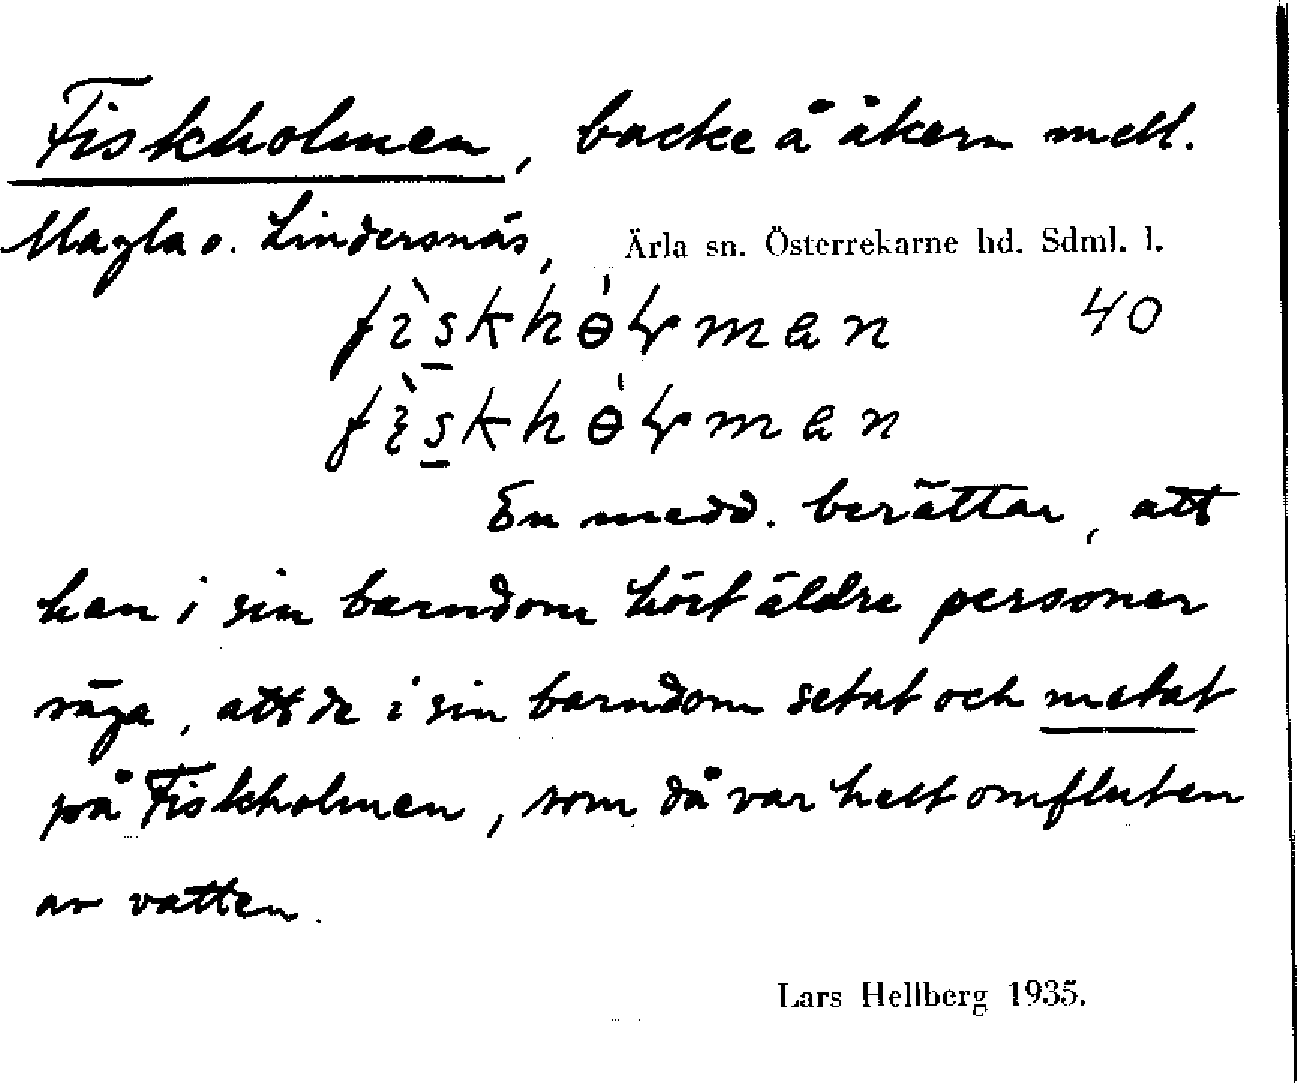 Fiskholmen, backe å åkern mell.
Magla o. Lindersnäs,
Ärla sn. Österrekarne hd. Sdml. l.
40
En medd. berättar, att
han i sin barndom hört äldre personer
säga, att de i sin barndom setat och metat
på Fiskholmen, som då var helt omfluten
av vatten.
Lars Hellberg 1935.